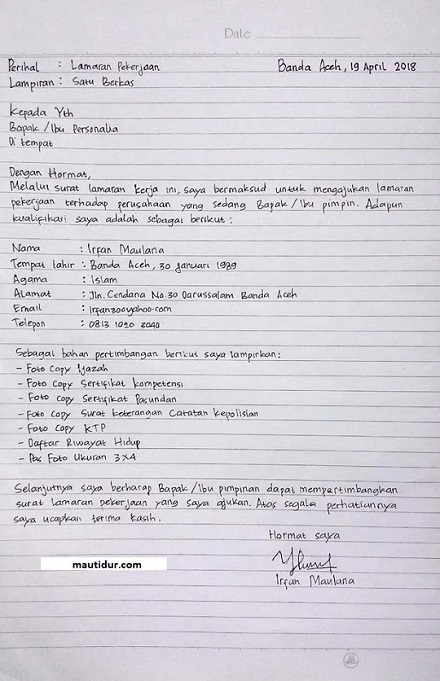 Date
Perihal : Lamaran Pekerjaan Banda Aceh, 19 April 2018
Lampiran : Satu Berkas
Kepada Yth
Bapak / Ibu Personalia
Di tempat
Dengan Hormat,
Melalui surat lamaran kerja ini, saya bermaksud untuk mengajukan lamaran
pekerjaan terhadap perusahaan yang sedang Bapak / Ibu pimpin. Adapun
kualifikasi saya adalah sebagai berikut :
Nama : Irfan Maulana
Tempat lahir : Banda Aceh, 30 Januari 1989
Agama : Islam
Alamat : Jln. Cendana No 30 Darussalam Banda Aceh
Email : Irfan300yahoo.com
Telepon : 0813 1020 3040
Sebagai bahan pertimbangan berikut saya lampirkan :
- Foto Copy Ijazah
- Foto Copy Sertifikat Kompetensi
- Foto Copy Sertifikat Pasundan
- Foto Copy Surat Keterangan Catatan Kepolisian
- Foto Copy KTP
- Daftar Riwayat Hidup
- Pas Foto Ukuran 3x4
Selanjutnya saya berharap Bapak / Ibu pimpinan dapat mempertimbangkan
surat lamaran pekerjaan yang saya ajukan. Atas segala perhatiannya
saya ucapkan terima kasih.
Hormat saya
mautidur.com
Irfan Maulana